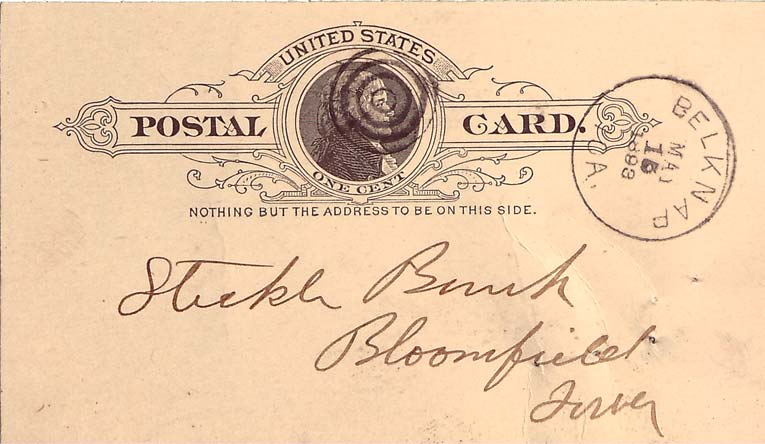 UNITED STATES
POSTAL CARD.
ONE CENT
NOTHING BUT THE ADDRESS TO BE ON THIS SIDE.
BELKNAP
15
1893
IA.
Steckle Bank
Bloomfield
Iowa